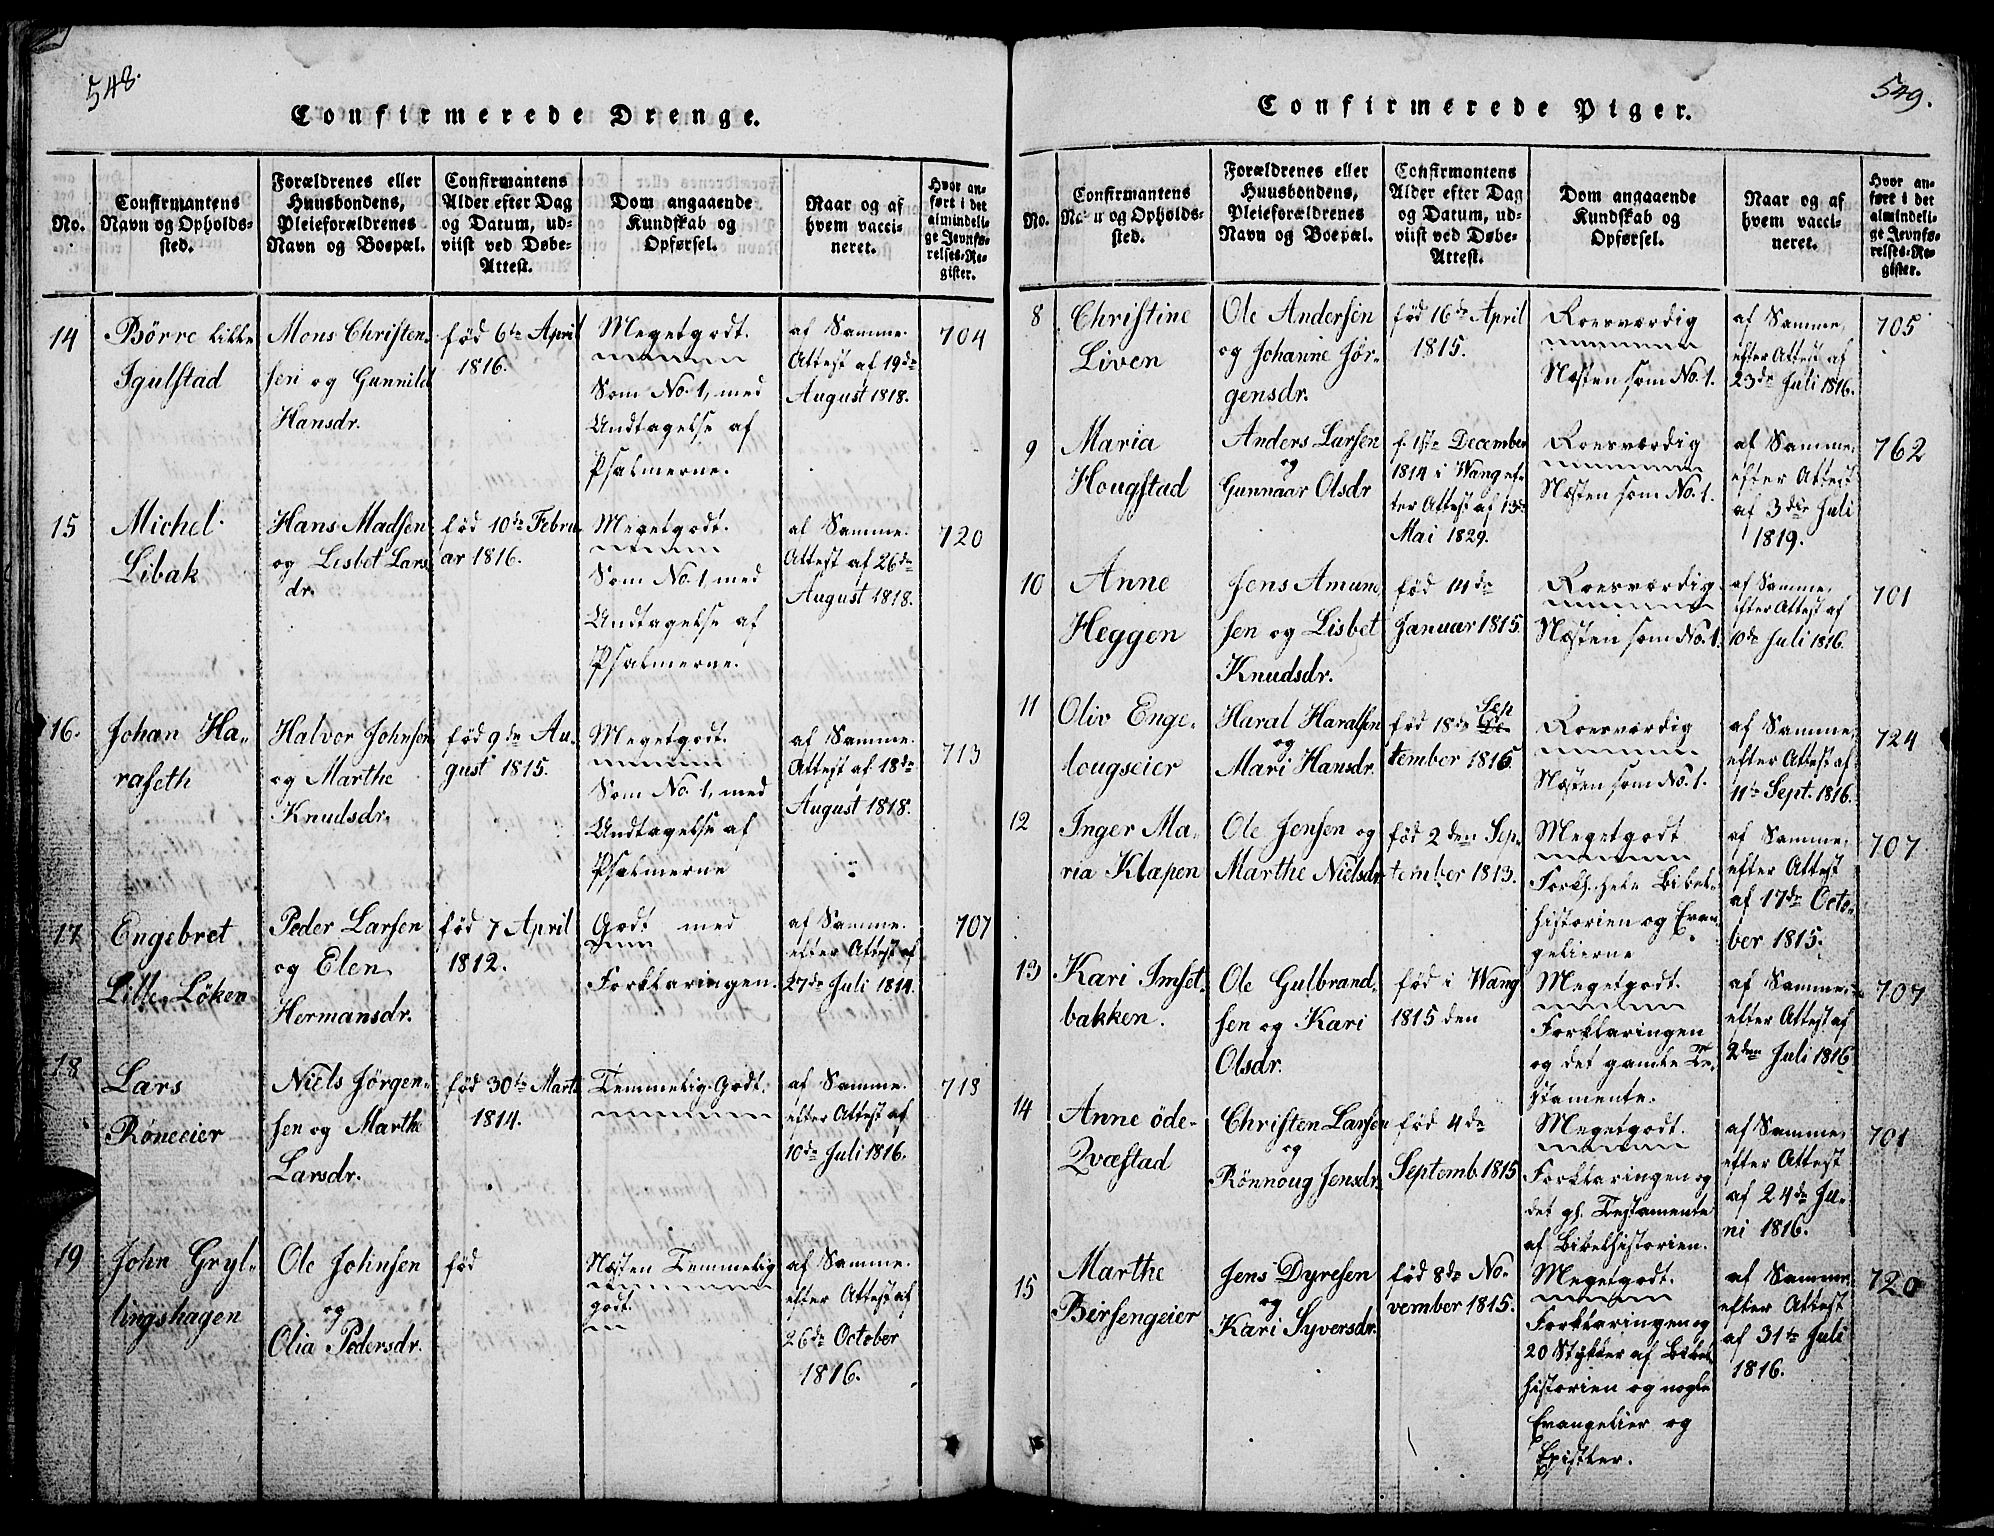 548.
Confirmerede Drenge.
No.
Confirmantens
Navn og Opholds-
sted.
Forældrenes eller
Huusbondens,
Pleieforældrenes
Navn og Boepæl.
Confirmantens
Alder efter Dag
og Datum, ud-
viist ved Døbe-
Attest.
Dom angaaende
Kundskab og
Opførsel.
Naar og af
hvem vacci-
neret.
Hvor an-
ført i det
almindeli-
ge Jevnfø-
relses-Re-
gister.
14
Børre Lille
Igulstad
Mons Christen-
sen og Gunnild
Hansdr.
fød 6te April
1816.
Megetgodt.
Som No. 1, med
Undtagelse af
Psalmerne.
af Samme.
Attest af 19de
August 1818.
704
15
Michel
Libak
Hans Madsen
og Lisbet Lars
dr.
fød 10de Febru-
ar 1816.
Megetgodt.
Som No. 1 med
Undtagelse af
Psalmerne.
af Samme.
Attest af 26de
August 1818.
720
16.
Johan Ha-
raseth
Halvor Johnson
og Marthe
Knudsdr.
fød 9de Au-
gust 1815.
Megetgodt.
Som No. 1, med
Undtagelse af
Psalmerne
af Samme.
Attest af 18de
August 1818.
713
17
Engebret
Lille-Løken
Peder Larsen
og Elen
Hermansdr.
fød 7 April
1812.
Godt med
Forklaringen.
af Samme.
efter Attest af
27de Juli 1814.
707
18
Lars
Røneeier
Niels Jørgen-
sen og Marthe
Larsdr.
fød 30te Marts
1814.
Temmelig-Godt.
af Samme.
efter Attest af
10de Juli 1816.
718
19
John Gryl-
lingshagen
Ole Johnsen
og
Olia Pedersdr.
fød
Næsten Temmelig
godt.
af Samme.
efter Attest af
26de October
1816.
549.
Confirmerede Piger.
No.
Confirmantens
Navn og Opholds-
sted.
Forældrenes eller
Huusbondens,
Pleieforældrenes
Navn og Boepæl.
Confirmantens
Alder efter Dag
og Datum, ud-
viist ved Døbe-
Attest.
Dom angaaende
Kundskab og
Opførsel.
Naar og af
hvem vacci-
neret.
Hvor an-
ført i det
almindeli-
ge Jevnfø-
relses-Re-
gister.
8
Christine
Liven
Ole Andersen
og Johanne Jør-
gensdr.
fød 16de April
1815.
Roesværdig
Næsten som No. 1.
af Samme,
efter Attest af
23de Juli 1816.
705
9
Maria
Hougstad
Anders Larsen
og
Gunnaar Olsdr
f. 1ste December
1814 i Wang ef-
ter Attest af 13de
Mai 1829.
Roesværdig
Næsten som No. 1.
af Samme,
efter Attest
af 3die Juli
1819.
762
10
Anne
Heggen
Jens Amund
sen og Lisbet
Knudsdr.
fød 14de
Januar 1815
Roesværdig
Næsten som No. 1.
af Samme,
efter Attest af
10de Juli 1816.
701
11
Oliv Enge-
lougseier
Haral Haralsen
og
Mari Hansdr.
fød 18de Sep
tember 1815
Roesværdig
Næsten som No. 1.
af Samme,
efter Attest af
11te Sept. 1816.
724
12
Inger Ma-
ria Klapen
Ole Jensen og
Marthe Nielsdr
fød 2den Sep-
tember 1813.
Megetgodt
Forkl. hele Bibel-
historien og Evan-
gelierne
af Samme,
efter Attest
af 17de Octo-
ber 1815.
707
13
Kari Imset-
bakken.
Ole Gulbrand-
sen og Kari
Olsdr.
fød i Wang
1815 den
Megetgodt.
Forklaringen
og det gamle Te-
stamente.
af Samme,
efter Attest af
2den Juli 1816
707
14
Anne öde-
Qvæstad
Christen Larsen
og
Rönnoug Jensdr.
fød 4de
Septemb. 1815
Megetgodt.
Forklaringen og
det gl. Testamente
af Bibelhistorien.
af Samme,
efter Attest
af 24de Ju-
ni 1816.
701
15
Marthe
Birsengeier
Jens Dyresen
og
Kari Syversdr.
fød 8de No-
vember 1815.
Megetgodt.
Forklaringen og
20 Stykker af Bibel-
historien og nogle
Evangelier og
Epistler.
af Samme
efter Attest
af 31te Juli
1816.
720